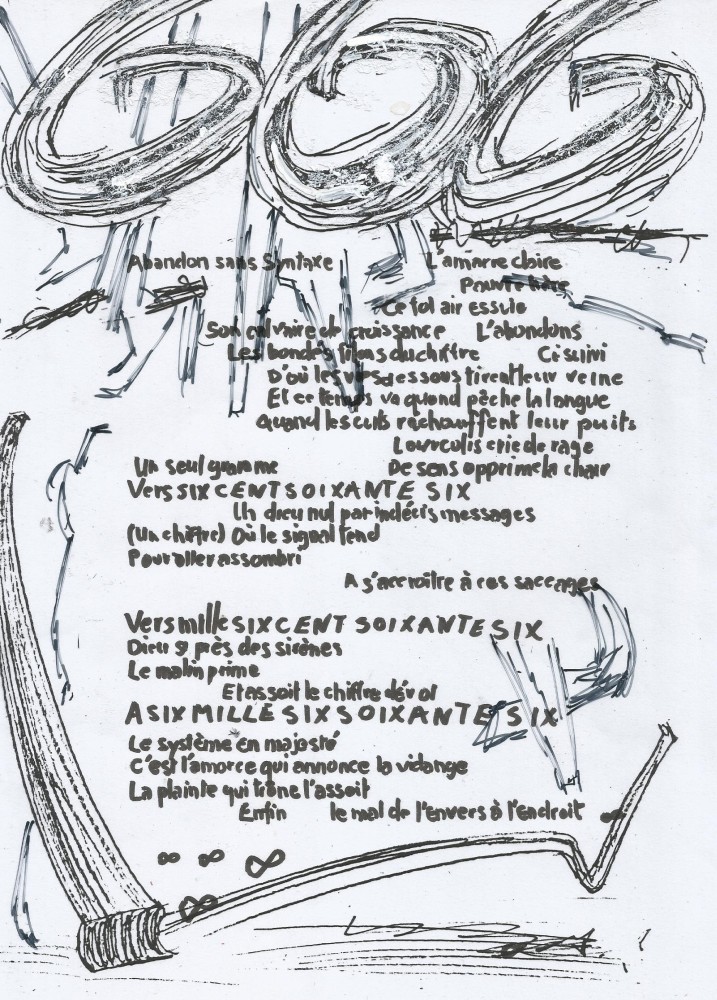 666
Abandon sans Syntaxe L'amarre claire
Pauvre hère
Ce fol air essuie
Son calvaire de croissance L'abondons
Les bondes films du chiffre Ci suivi
D'où les dessous tirent leur veine
Et ce temps va quand pèche la langue
Quand les culs réchauffent leur puits
crie de rage
Un seul gramme De sens opprime la chair
Vers SIX CENT SOIXANTE SIX
Un dieu nul par indécis messages
(Un chiffre) Où le signal fend
Pour aller assombri
A s'accroître à ces saccages
Vers mille SIX CENT SOIXANTE SIX
Dieu près des sirènes
Le malin prime
Et assoit le chiffre dévot
A SIX MILLE SIX SOIXANTE SIX
Le système en majesté
C'est l'amorce qui annonce la vidange
La plainte qui trône l'assoit
Enfin le mal de l'envers à l'endroit